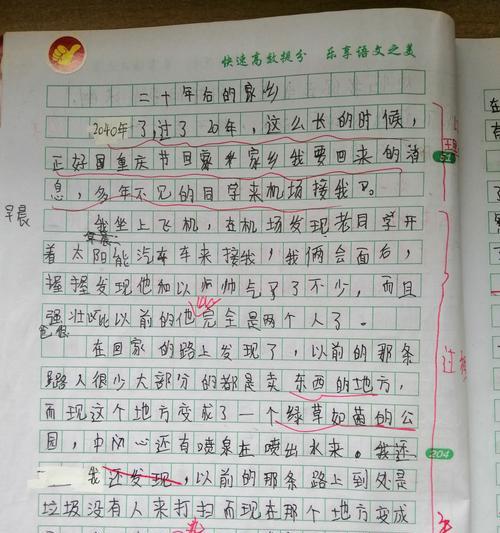 快速高效提分 乐享语文之美
二十年后的家乡
2040年了过了20年，这么长的时候，
正好国重庆节回家乡家乡我要回来的消
息，多年不见的同学来机场接我了。
早晨
我坐上飞机，在机场发现老同学开
着太阳能汽车车来接我，我俩会面后，
握握发现他和以帅帅气了了不少，而且
强壮此以前的他完全是两个人了。
在回家的路上发现了，以前的那条
路人很少大部分的都是卖东西的地方，
而现这个地方变成了一个绿草如茵的公
园，中心还有喷泉在喷出水来。我还
我还发现，以前的那条路上到处是
204
垃圾没有人来打扫而现在那个地方变成